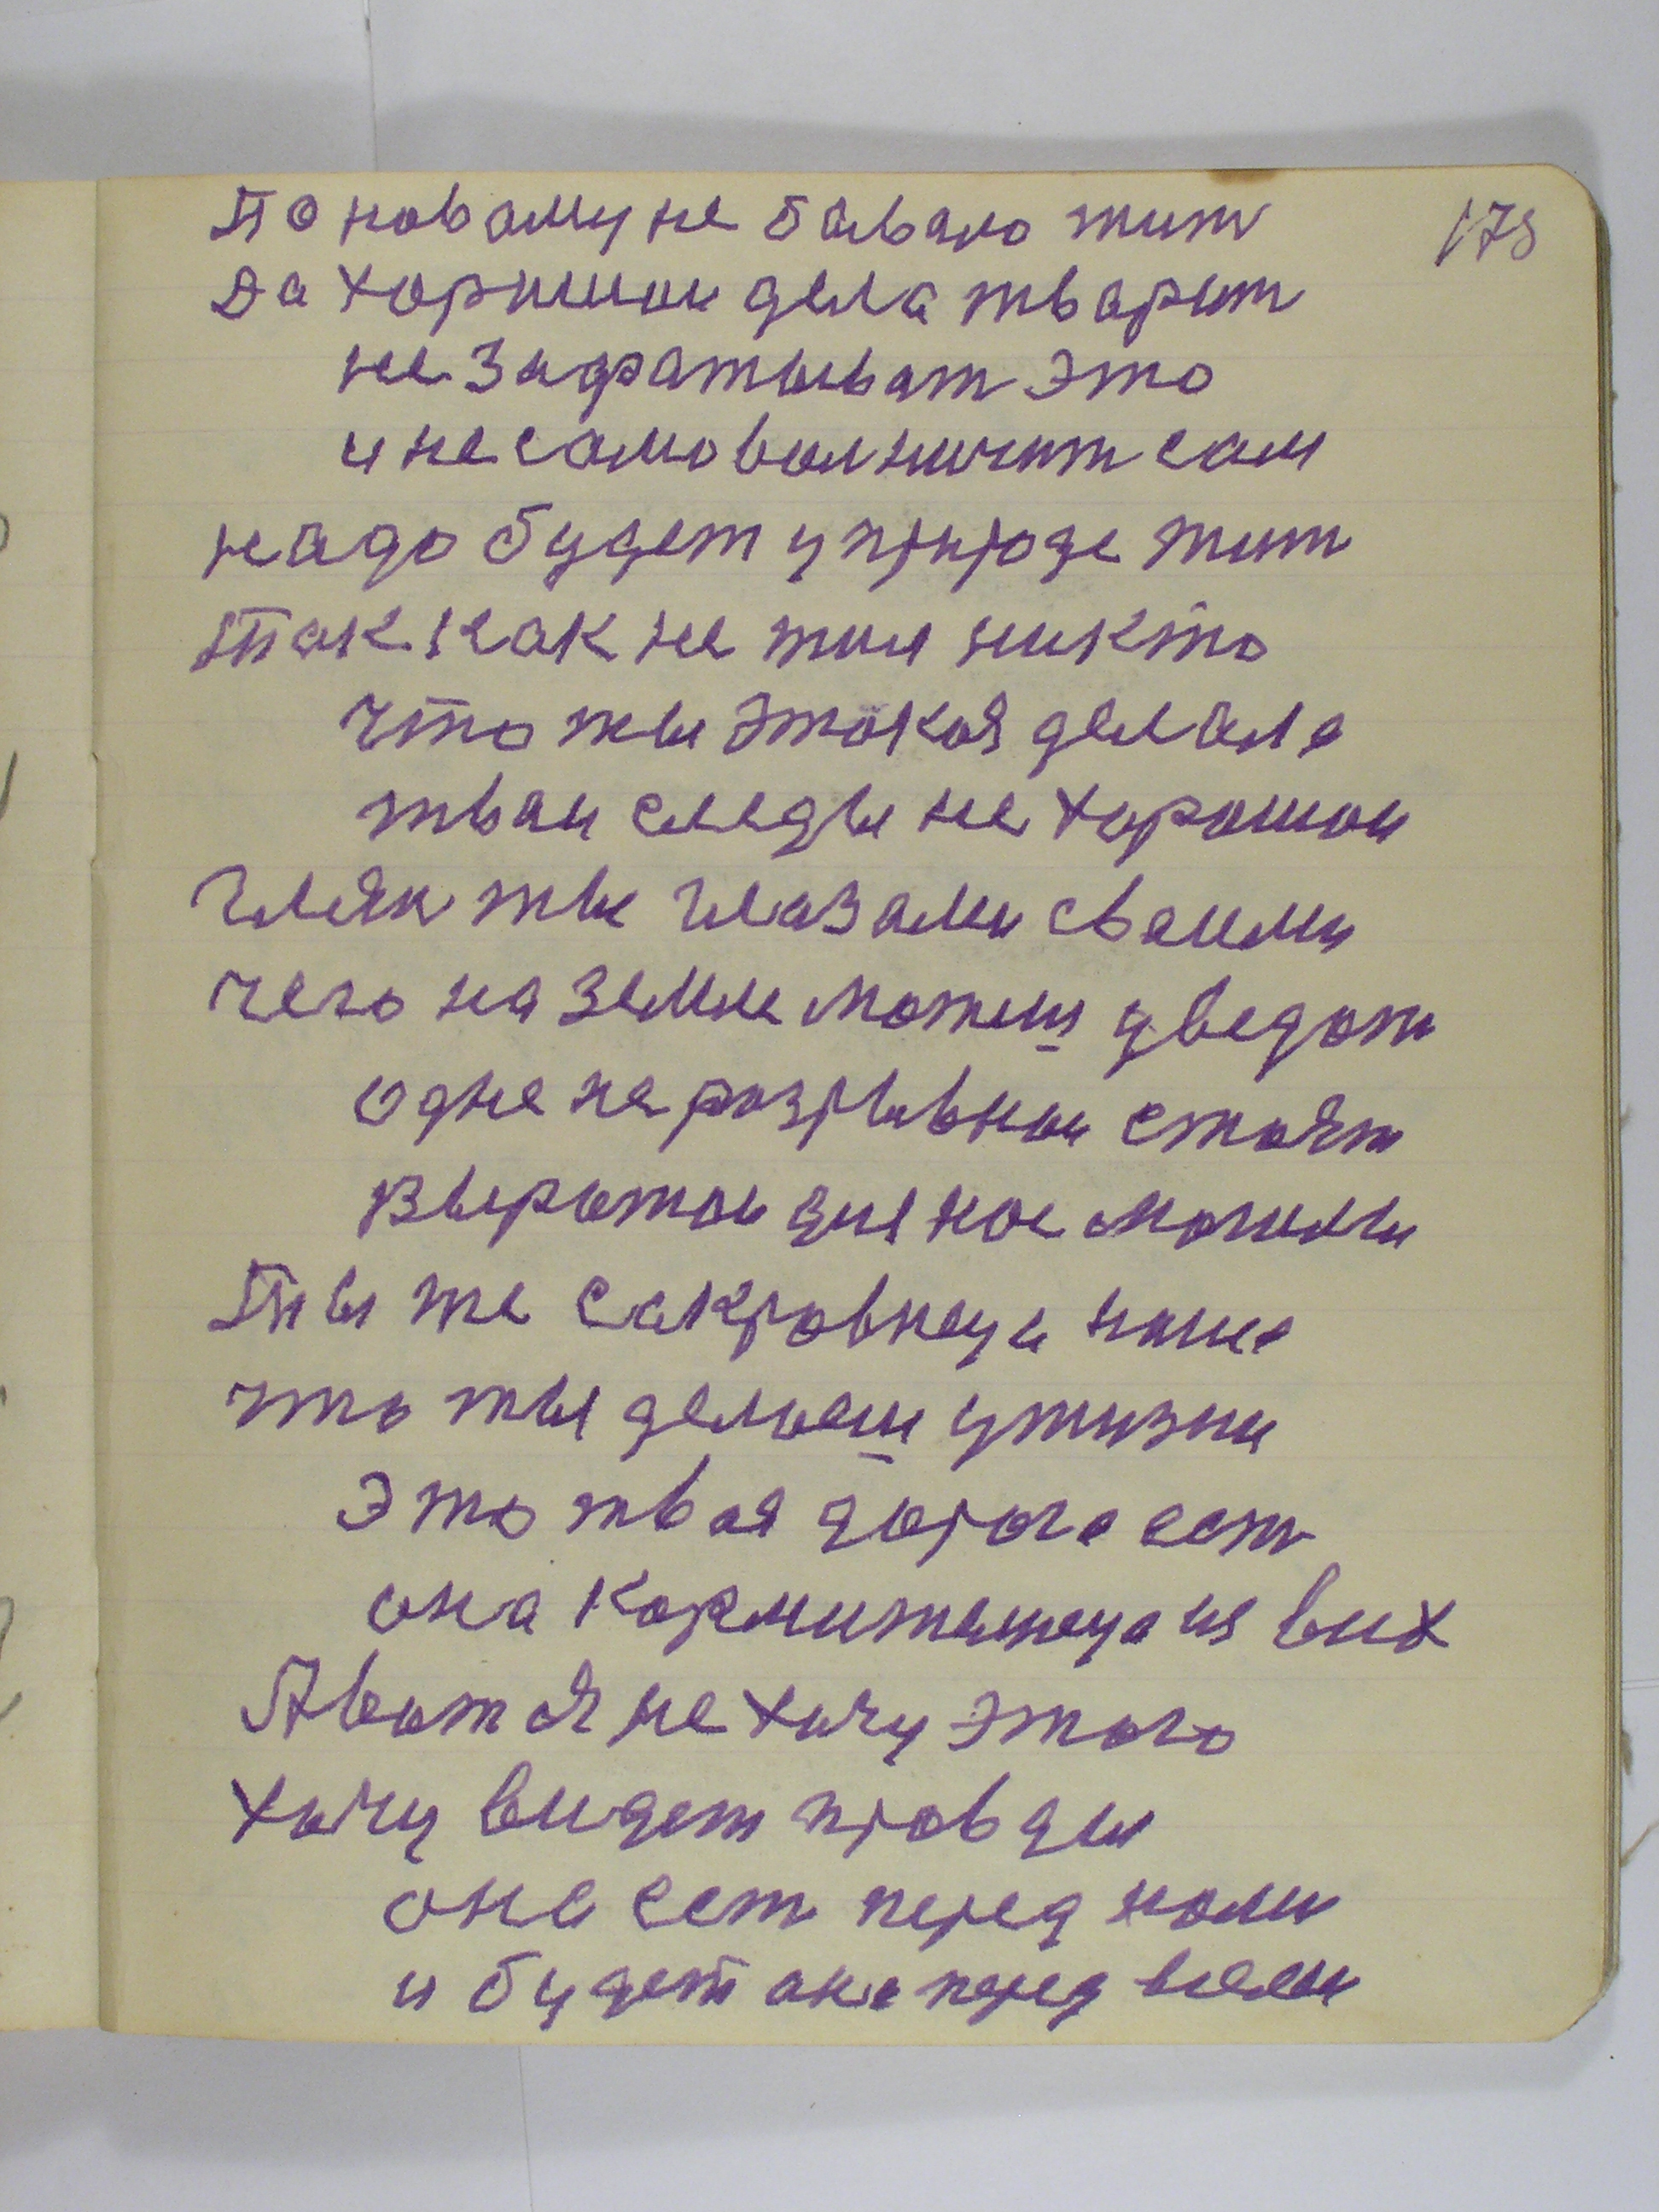 175
По новаму не бывало жит
Да хорошои дела тварит
не заратыват это
и не самоволничит сам
надо будет у природе жит
Так как не жил никто
что ты этокоя делала
тваи следы не хорошои
Гляи ты глазами сваими
чего на земле можеш уведат
одне не розрывнои стоят
Выротои для нас могилы
Ты же сакровнеца наша
что ты делаеш у жизни
Это твоя дорога ест
она кормителнеца их всих
А вот я не хочу этого
хочу видет провды
она ест перед нами
и будет она перед всеми